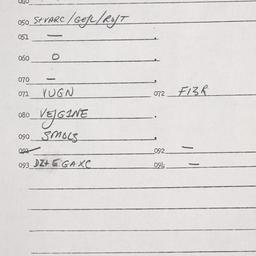 050 S+VARC/GEJL/RYJT
051 —
060 O
070 —
071 VUGN 072 FIZR
080 VEJGINE
090 SMOLS
091 092 —
093 DZ+EGAXC 094 —